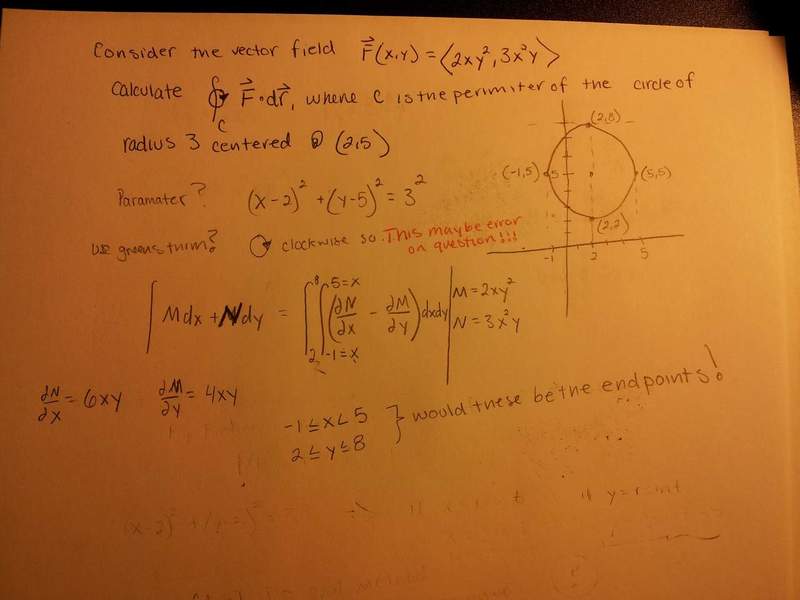 Consider the vector field F⃗(x,y) = ⟨2xy², 3x²y⟩
Calculate ∮ F⃗•dr⃗, where C is the perimiter of the circle of
C
radius 3 centered @ (2,5)
(2,8)
(-1,5)
5
(5,5)
(2,2)
-1 2 5
Paramater? (x-2)² + (y-5)² = 3²
use greens thrm? clockwise so. This maybe error
on question!!!
∫ Mdx + Ndy = ∫₂⁸ ∫₋₁₌ₓ⁵⁼ˣ (∂N/∂x - ∂M/∂y) dxdy
M = 2xy²
N = 3x²y
∂N/∂x = 6xy ∂M/∂y = 4xy
-1 ≤ x < 5
2 ≤ y ≤ 8
} would these be the endpoints!